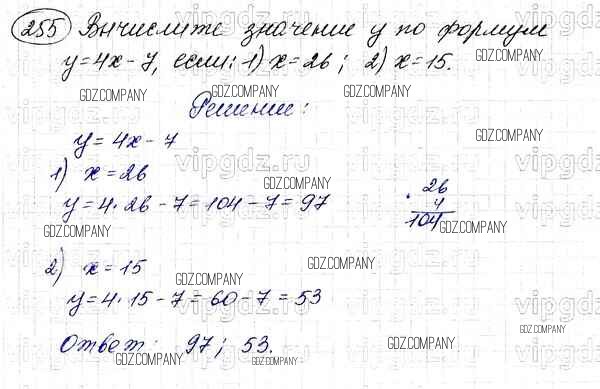 255 Вычислите значение y по формуле
y=4x-7, если: 1) x=26; 2) x=15.
GDZ.COMPANY GDZ.COMPANY GDZ.COMPANY
Решение:
GDZ.COMPANY
y=4x-7
1) x=26
GDZ.COMPANY
y=4·26-7=104-7=97
26
4
104
GDZ.COMPANY GDZ.COMPANY
2) x=15
GDZ.COMPANY
GDZ.COMPANY
y=4·15-7=60-7=53
Ответ: 97; 53.
GDZ.COMPANY GDZ.COMPANY GDZ.COMPANY
vipgdz.ru